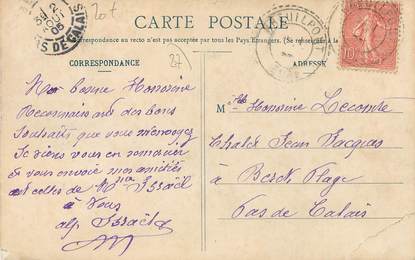 CARTE POSTALE
La Correspondance au recto n'est pas acceptée par tous les Pays Étrangers. (Se renseigner à la
CORRESPONDANCE
ADRESSE
20f
27
PAS DE CALAIS
05
10
Ma bonne Honorine
Reconnaissant des bons
Souhaits que vous m'envoyez
Je viens vous en remercier
et vous envoie mes amitiés
et celles de Mme Israël
à Vous
alp. Israël
Mlle Honorine Lecomte
Chalet Jean Jacques
à Berck Plage
Pas de Calais